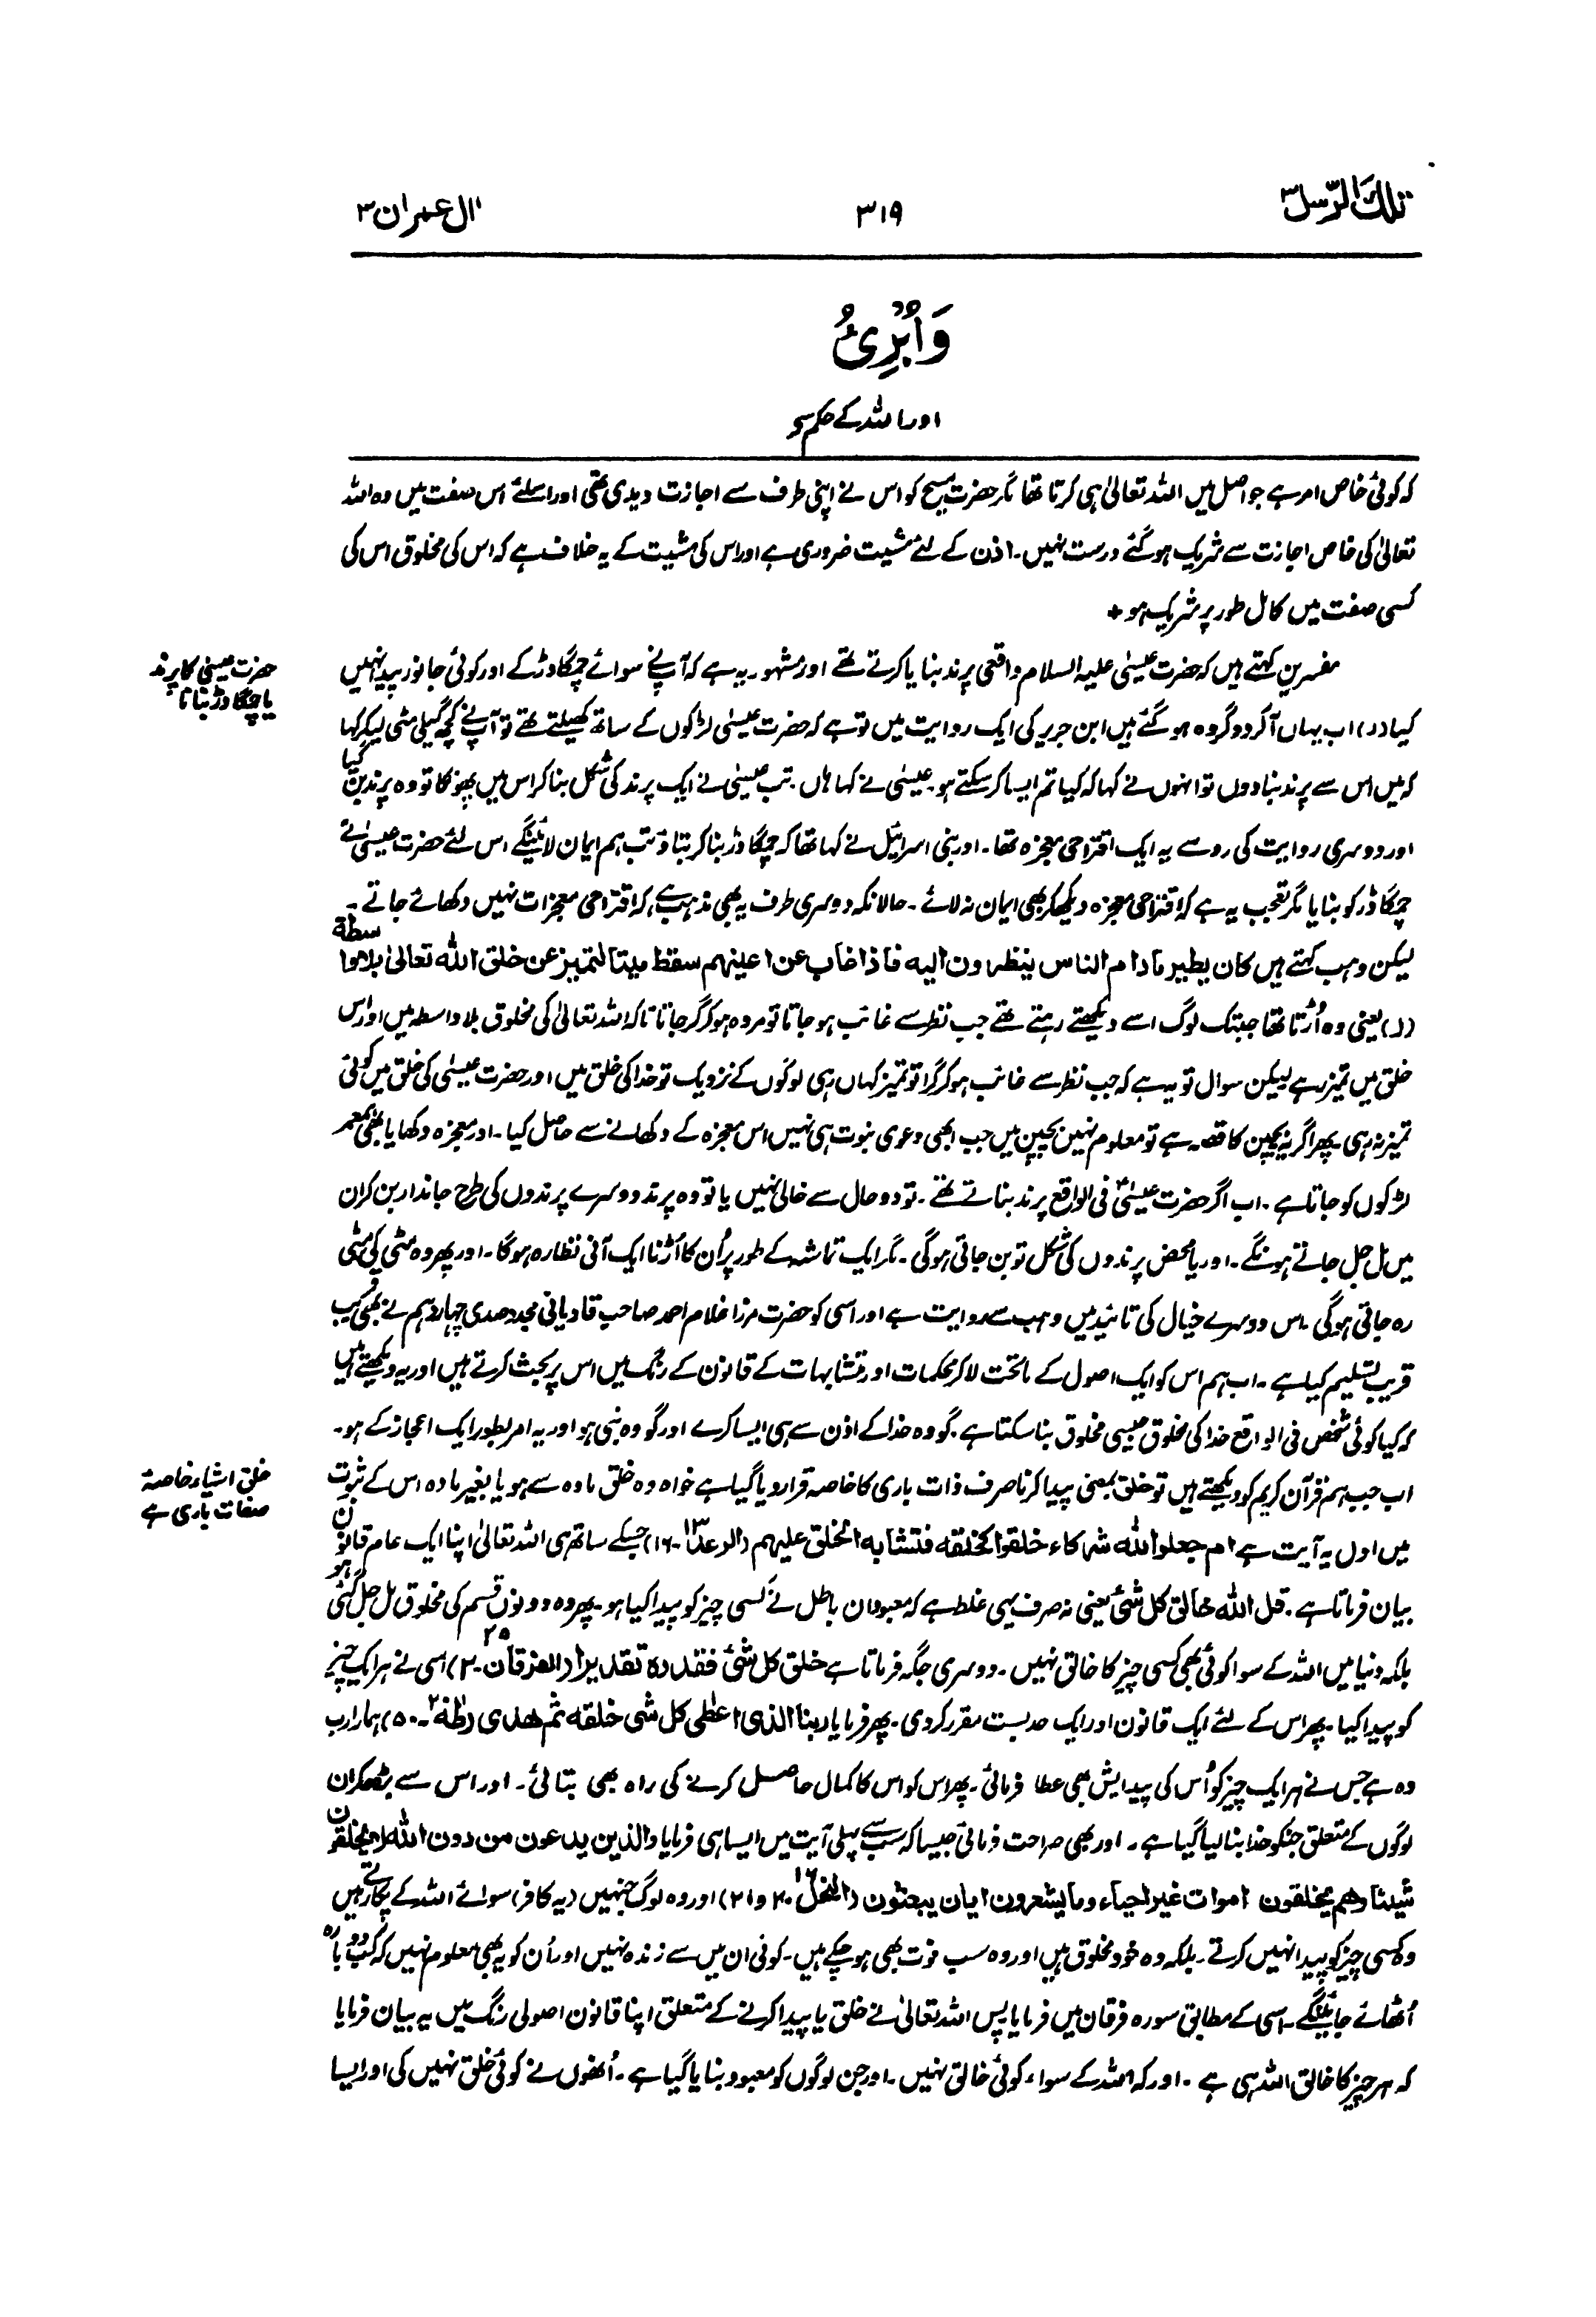 تلك الرّسل ۳
۳۱۹
اٰل عمران ۳
وَاُبْرِئُ
اور اللہ کے حکم سے
کہ کوئی خاص امر ہے جو اصل میں اللہ تعالیٰ ہی کرتا تھا مگر حضرت مسیح کو اس نے اپنی طرف سے اجازت دیدی تھی اور اسلئے اس صفت میں وہ اللہ
تعالیٰ کی خاص اجازت سے شریک ہو گئے درست نہیں۔ اذن کے لئے مشیت ضروری ہے اور اس کی مشیت کے یہ خلاف ہے کہ اس کی مخلوق اس کی
کسی صفت میں کامل طور پر شریک ہو +
حضرت عیسیٰ کا پرند
یا چمگادڑ بنانا
مفسرین کہتے ہیں کہ حضرت عیسیٰ علیہ السلام واقعی پرند بنایا کرتے تھے اور مشہور یہ ہے کہ آپ نے سوائے چمگادڑ کے اور کوئی جانور پیدا نہیں
کیا (ر) اب یہاں آکر دو گروہ ہو گئے ہیں ابن جریر کی ایک روایت میں تو ہے کہ حضرت عیسیٰ لڑکوں کے ساتھ کھیلتے تھے تو آپ نے کچھ گیلی مٹی لیکر کہا
کہ میں اس سے پرند بنا دوں تو انہوں نے کہا کہ کیا تم ایسا کر سکتے ہو۔ عیسیٰ نے کہا ہاں۔ تب عیسیٰ نے ایک پرند کی شکل بنا کر اس میں پھونکا تو وہ پرند بن گیا
اور دوسری روایت کی رو سے یہ ایک اقتراحی معجزہ تھا۔ اور بنی اسرائیل نے کہا تھا کہ چمگادڑ بنا کر بتاؤ تب ہم ایمان لائینگے اس لئے حضرت عیسیٰ نے
چمگادڑ کو بنایا مگر تعجب یہ ہے کہ اقتراحی معجزہ دیکھ کر بھی ایمان نہ لائے۔ حالانکہ دوسری طرف یہ بھی مذہب ہے کہ اقتراحی معجزات نہیں دکھائے جاتے۔
لیکن وہب کہتے ہیں كان يطير مادام الناس ينظرون اليه فاذا غاب عن اعينهم سقط ميتا لتميز عن خلق الله تعالىٰ بلا واسطة
(ر) یعنی وہ اُڑتا تھا جبتک لوگ اسے دیکھتے رہتے تھے جب نظر سے غائب ہو جاتا تو مردہ ہو کر گر جاتا تاکہ اللہ تعالیٰ کی مخلوق بلا واسطہ میں اور اس
خلق میں تمیز رہے لیکن سوال تو یہ ہے کہ جب نظر سے غائب ہو کر گرا تو تمیز کہاں رہی لوگوں کے نزدیک تو خدا کی خلق میں اور حضرت عیسیٰ کی خلق میں کوئی
تمیز نہ رہی۔ پھر اگر یہ بچپن کا قصہ ہے تو معلوم نہیں بچپن میں جب ابھی دعوی نبوت ہی نہیں اس معجزہ کے دکھانے سے حاصل کیا۔ اور معجزہ دکھایا بھی ہمعمر
لڑکوں کو جاتا ہے۔ اب اگر حضرت عیسیٰؑ فی الواقع پرند بناتے تھے۔ تو دو حال سے خالی نہیں یا تو وہ پرند دوسرے پرندوں کی طرح جاندار بن کر ان
میں مل جل جاتے ہونگے۔ اور یا محض پرندوں کی شکل تو بن جاتی ہوگی۔ مگر ایک تماشہ کے طور پر اُن کا اُڑنا ایک آنی نظارہ ہوگا۔ اور پھر وہ مٹی کی مٹی
رہ جاتی ہوگی۔ اس دوسرے خیال کی تائید میں وہب سے روایت ہے اور اسی کو حضرت مرزا غلام احمد صاحب قادیانی مجدد صدی چہاردہم نے بھی قریب
قریب تسلیم کیا ہے۔ اب ہم اس کو ایک اصول کے ماتحت لاکر محکمات اور متشابہات کے قانون کے رنگ میں اس پر بحث کرتے ہیں اور یہ دیکھتے ہیں
کہ کیا کوئی شخص فی الواقع خدا کی مخلوق جیسی مخلوق بنا سکتا ہے۔ گو وہ خدا کے اذن سے ہی ایسا کرے اور گو وہ نبی ہو اور یہ امر بطور ایک اعجاز کے ہو۔
خلق اشیاء خاصۂ
صفات باری ہے
اب جب ہم قرآن کریم کو دیکھتے ہیں تو خلق بمعنی پیدا کرنا صرف ذات باری کا خاصہ قرار دیا گیا ہے خواہ وہ خلق مادہ سے ہو یا بغیر مادہ اس کے ثبوت
میں اول یہ آیت ہے ام جعلوا لله شركاء خلقوا كخلقه فتشابه الخلق عليهم (الرعد ۱۳۔ ۱۶) جسکے ساتھ ہی اللہ تعالیٰ اپنا ایک عام قانون
بیان فرماتا ہے۔ قل الله خالق كل شئ یعنی نہ صرف یہی غلط ہے کہ معبودان باطل نے کسی چیز کو پیدا کیا ہو۔ پھر وہ دونوں قسم کی مخلوق مل جل گئی ہو
بلکہ دنیا میں اللہ کے سوا کوئی بھی کسی چیز کا خالق نہیں۔ دوسری جگہ فرماتا ہے خلق كل شئ فقدره تقديرا (الفرقان ۲۵۔ ۲) اسی نے ہر ایک چیز
کو پیدا کیا۔ پھر اس کے لئے ایک قانون اور ایک حد بست مقرر کردی۔ پھر فرمایا ربنا الذى اعطى كل شى خلقه ثم هدى (طٰهٰ ۲۰۔ ۵۰) ہمارا رب
وہ ہے جس نے ہر ایک چیز کو اُس کی پیدایش بھی عطا فرمائی۔ پھر اس کو اس کا کمال حاصل کرنے کی راہ بھی بتائی۔ اور اس سے بڑھکر ان
لوگوں کے متعلق جنکو خدا بنا لیا گیا ہے۔ اور بھی صراحت فرمائی جیسا کہ سب سے پہلی آیت میں ایسا ہی فرمایا والذين يدعون من دون الله لا يخلقون
شيئا وهم يخلقون اموات غير احياء وما يشعرون ايان يبعثون (النحل ۱۶۔ ۲۰ و ۲۱) اور وہ لوگ جنہیں (یہ کافر) سوائے اللہ کے پکارتے ہیں
وہ کسی چیز کو پیدا نہیں کرتے۔ بلکہ وہ خود مخلوق ہیں اور وہ سب فوت بھی ہو چکے ہیں۔ کوئی ان میں سے زندہ نہیں اور اُن کو یہ بھی معلوم نہیں کہ کب دوبارہ
اُٹھائے جائینگے۔ اسی کے مطابق سورہ فرقان میں فرمایا پس اللہ تعالیٰ نے خلق یا پیدا کرنے کے متعلق اپنا قانون اصولی رنگ میں یہ بیان فرمایا
کہ ہر چیز کا خالق اللہ ہی ہے۔ اور کہ اللہ کے سواء کوئی خالق نہیں۔ اور جن لوگوں کو معبود بنایا گیا ہے۔ اُنھوں نے کوئی خلق نہیں کی اور ایسا